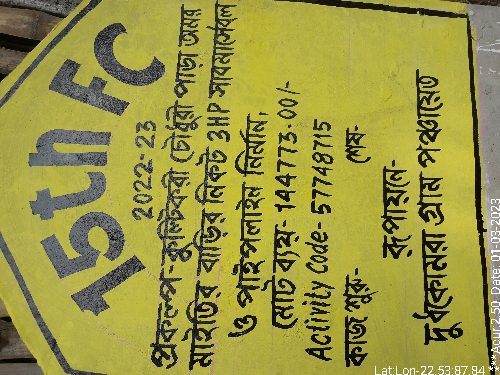 15th FC
2022-23
প্রকল্প-কুল্টিকরী চৌধুরী পাড়া অমর
মাইতির বাড়ির নিকট 3HP সাবমার্সেবল
ও পাইপলাইন নির্মান,
মোট ব্যয়:- 144773.00/-
Activity Code- 57748715
কাজ শুরু:- শেষ:-
রূপায়নে:-
দুধকোমরা গ্রাম পঞ্চায়েত
Lat:Lon-22.53:87.84 ***Acur:2.51 Date: 01-03-2023